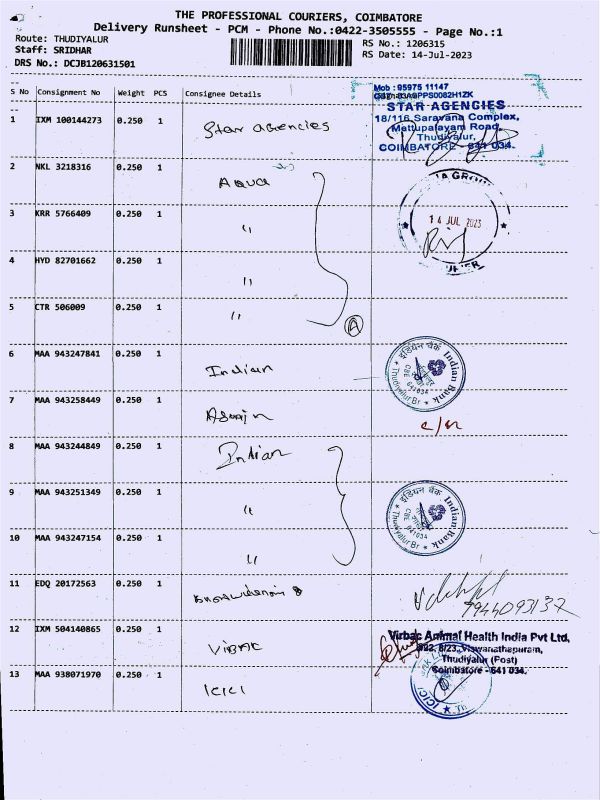 THE PROFESSIONAL COURIERS, COIMBATORE
Delivery Runsheet - PCM - Phone No.:0422-3505555 - Page No.:1
Route: THUDIYALUR
RS No.: 1206315
Staff: SRIDHAR
RS Date: 14-Jul-2023
DRS No.: DCJB120631501
S No Consignment No Weight PCS Consignee Details
Mob : 95975 11147
STAR AGENCIES
18/116 Saravana Complex,
Mettupalayam Road,
Thudiyalur,
COIMBATORE - 641 034.
1 IXM 100144273 0.250 1 Star agencies
2 NKL 3218316 0.250 1 Aqua
3 KRR 5766409 0.250 1 "
14 JUL 2023
4 HYD 82701662 0.250 1 "
5 CTR 506009 0.250 1 "
A
6 MAA 943247841 0.250 1 Indian
इंडियन बैंक Indian Bank
CBE 641034
Thudiyalur Br
7 MAA 943258449 0.250 1
8 MAA 943244849 0.250 1 Indian
9 MAA 943251349 0.250 1 "
इंडियन बैंक Indian Bank
CBE 641034
Thudiyalur Br
10 MAA 943247154 0.250 1 "
11 EDQ 20172563 0.250 1
7944093137
12 IXM 504140865 0.250 1 VIBAK
Virbac Animal Health India Pvt Ltd,
8/23, Viswanathapuram,
Thudiyalur (Post)
Coimbatore - 641 034.
13 MAA 938071970 0.250 1 ICICI
ICICI